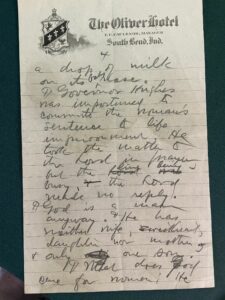 The Oliver Hotel
MANAGER
South Bend, Ind.
4
a drop of milk
on its
¶ Governor Hughes
was importuned to
commute the woman's
sentence to life
imprisonment. He
took the matter to
the Lord in prayer
but the
the Lord
made no reply.
¶ God is a man
anyway. He has
neither wife, sweetheart,
daughter nor mother
& only one son.
¶ What does God
care for women, He